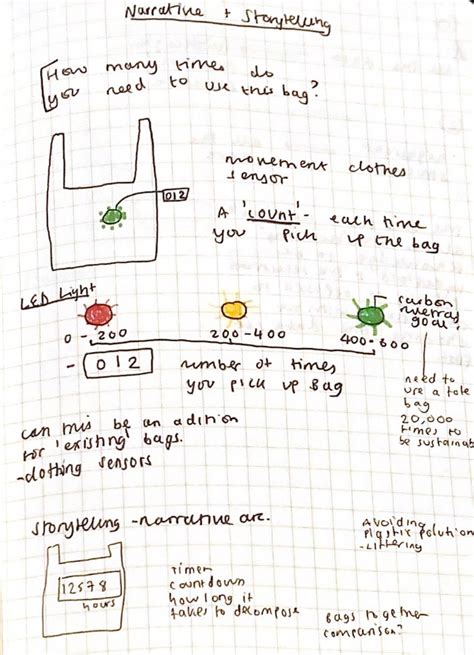 Narrative + Storytelling
How many times do
you need to use this bag?
012
movement clothes
sensor
A 'count' - each time
you pick up the bag
LED Light
carbon
goal
0 - 200
200 - 400
400 - 600
- 012
number of times
you pick up bag
need to
use a tote
bag
20,000
times to
be sustainab
can this be an adition
for 'existing' bags.
- clothing sensors
Storytelling - narrative arc.
Avoiding
plastic polution
- littering
12578
hours
Timer
countdown
how long it
takes to decompose
Bags together
comparison?